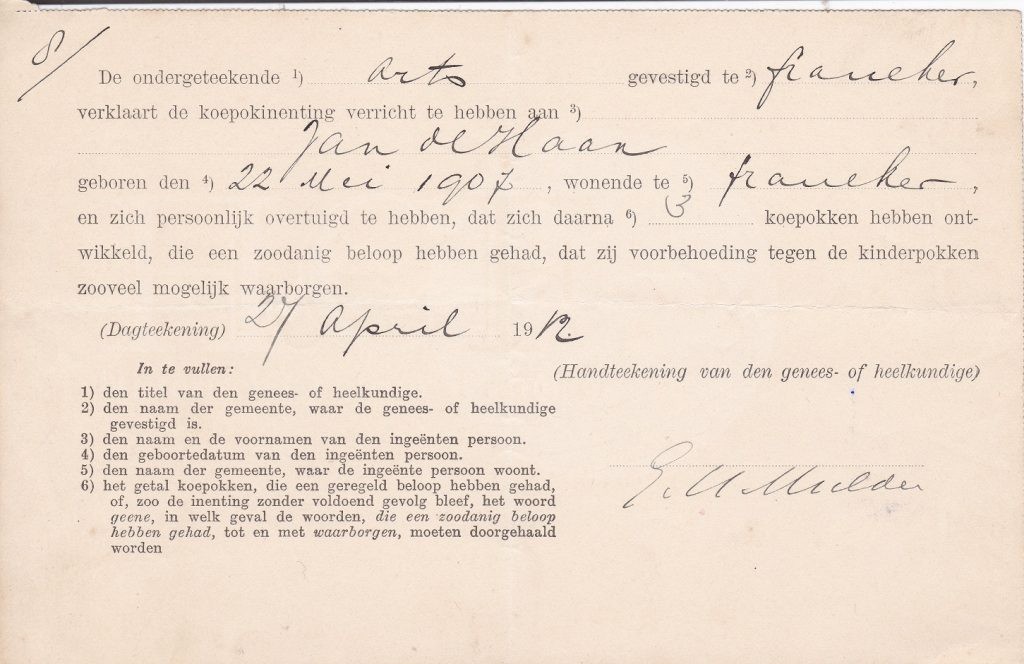 8/
De ondergeteekende 1) arts gevestigd te 2) franeker,
verklaart de koepokinenting verricht te hebben aan 3)
Jan de Haan
geboren den 4) 22 Mei 1907, wonende te 5) franeker,
en zich persoonlijk overtuigd te hebben, dat zich daarna 6) 3 koepokken hebben ont-
wikkeld, die een zoodanig beloop hebben gehad, dat zij voorbehoeding tegen de kinderpokken
zooveel mogelijk waarborgen.
(Dagteekening) 27 April 1912.
In te vullen:
(Handteekening van den genees- of heelkundige)
1) den titel van den genees- of heelkundige.
2) den naam der gemeente, waar de genees- of heelkundige
gevestigd is.
3) den naam en de voornamen van den ingeënten persoon.
4) den geboortedatum van den ingeënten persoon.
5) den naam der gemeente, waar de ingeënte persoon woont.
6) het getal koepokken, die een geregeld beloop hebben gehad,
of, zoo de inenting zonder voldoend gevolg bleef, het woord
geene, in welk geval de woorden, die een zoodanig beloop
hebben gehad, tot en met waarborgen, moeten doorgehaald
worden
Mulder